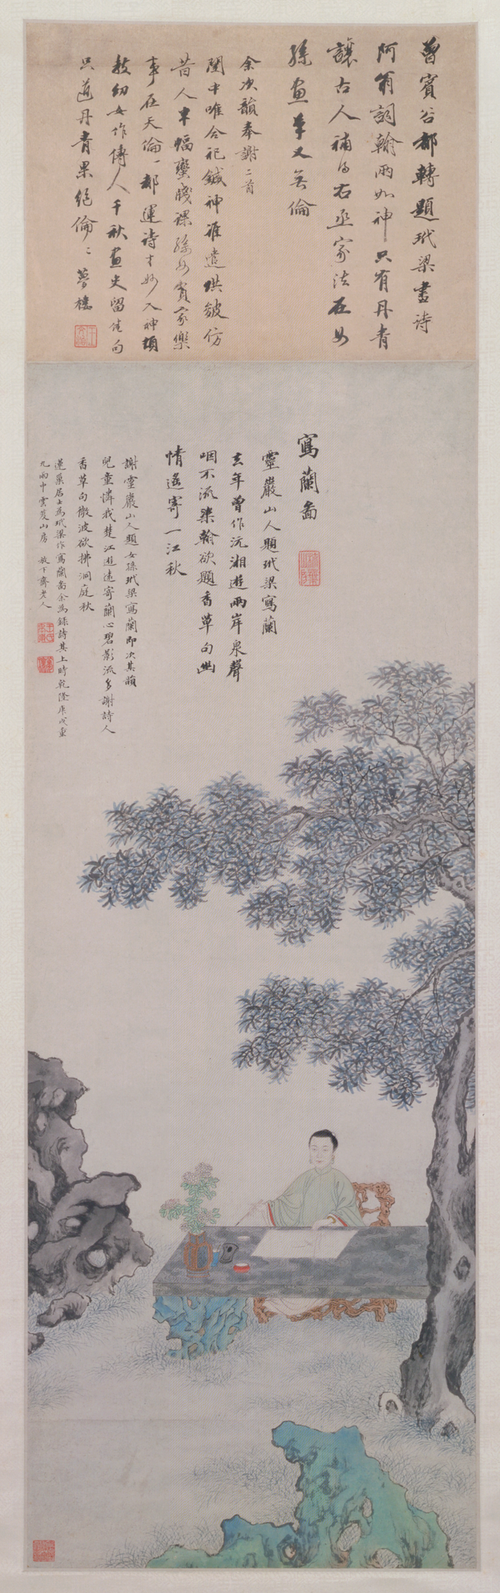 曾賓谷都轉題玳梁畫詩
阿翁詞翰兩如神只有丹青
讓古人補得右丞家法在女
孫畫筆又無倫
余次韻奉謝二首
閨中唯合祀鍼神誰遣皴仿
昔人半幅蠻牋課孫女貧家樂
事在天倫一都運詩才妙入神頻
教幼女作傳人千秋畫史留佳句
只道丹青果絕倫二 夢樓
寫蘭圖
靈巖山人題玳梁寫蘭
去年曾作沅湘遊兩岸泉聲
咽不流染翰欲題香草句幽
情遙寄一江秋
謝靈巖山人題女孫玳梁寫蘭即次其韻
兒童憐我楚江遊遠寄蘭心碧影流多謝詩人
香草句微波欲拂洞庭秋
蓮巢居士為玳梁作寫蘭圖余為錄詩其上時乾隆庚戌重
九雨中雲山房 放下齋老人